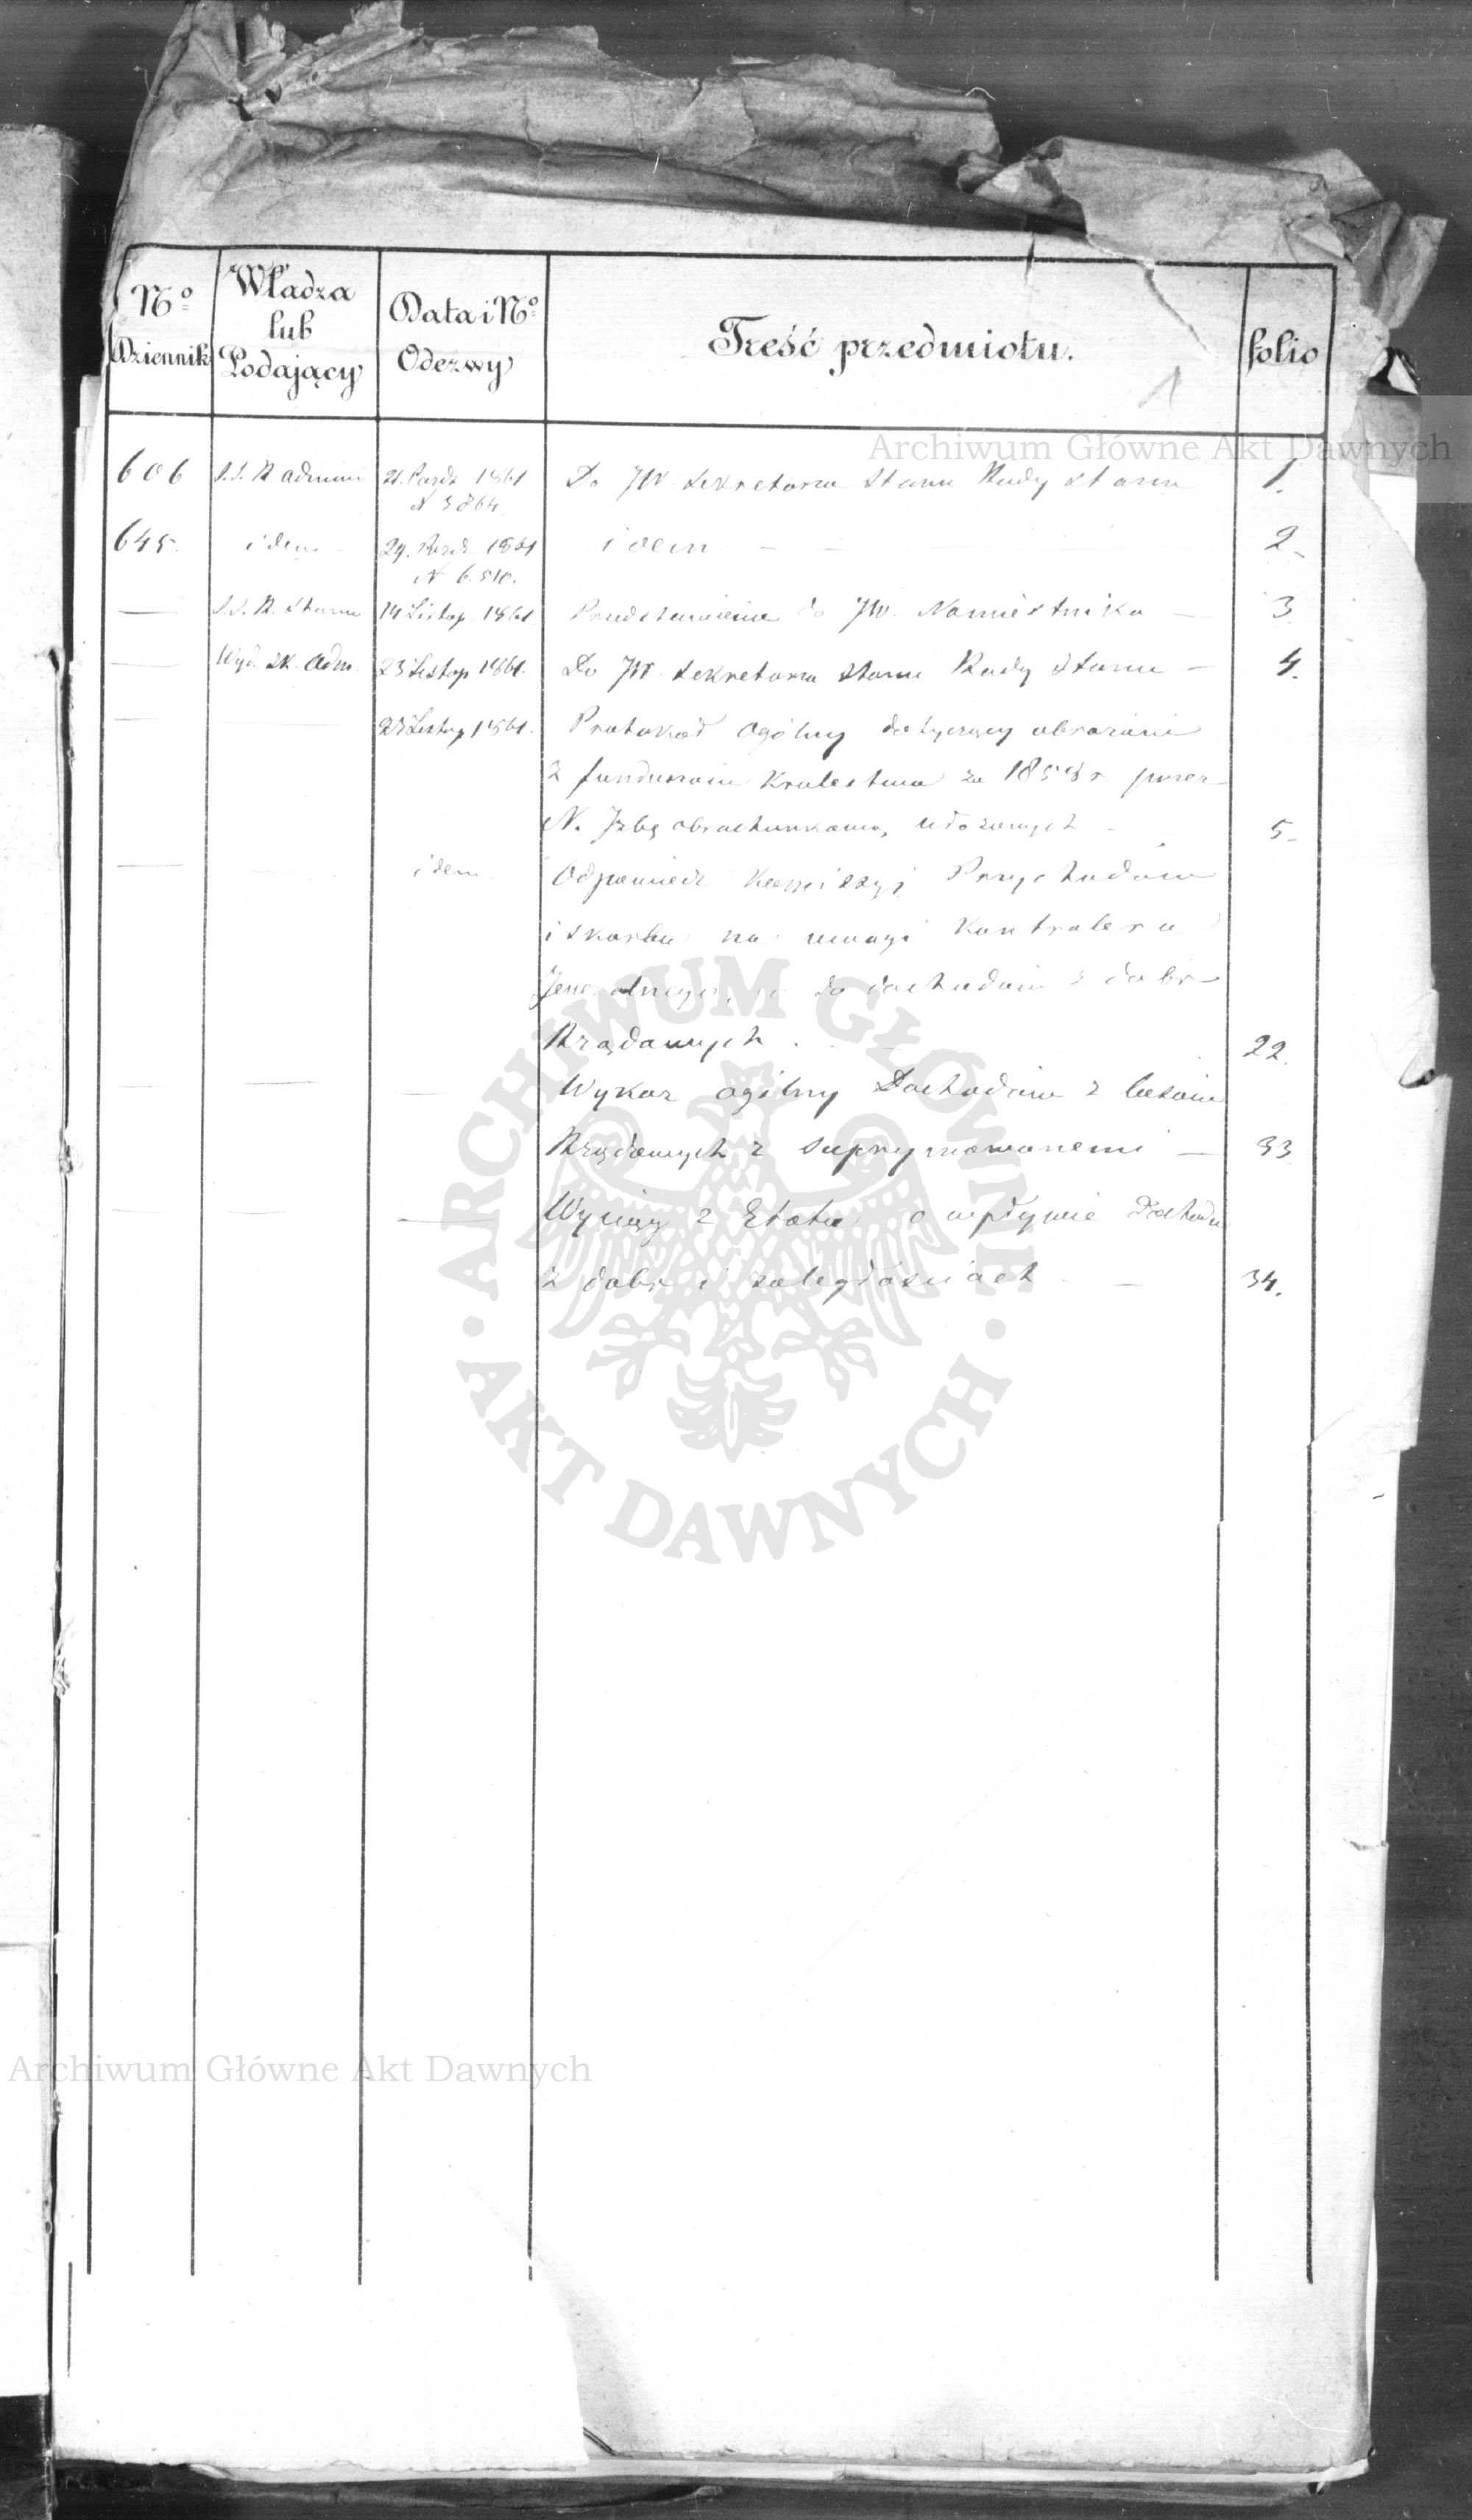 Nº Dziennik
Władza
lub
Podający
Data i Nº
Odezwy
Treść przedmiotu.
folio
1
Archiwum Główne Akt Dawnych
606 S.S. R. admin 21. Paźdz. 1861 Do JW Sekretarza Stanu Rady Stanu 1.
N 5864
645. idem 29. Paźdz. 1861 idem — — 2.
N 6.510.
— S.S. R. Stanu 14 Listop. 1861 Przedstawienie do JW. Namiestnika — 3
— Wyd. Sk. Adm. 23 Listop 1861. Do JW. Sekretarza Stanu Rady Stanu — 4.
— — 23 Listop 1861. Protokół ogólny dotyczący
z funduszów Królestwa za 1858 r przez
N. Izbę obrachunkową, ułożonych 5
— — idem Odpowiedź Kommissyi Przychodów
i Skarbu na uwagi Kontrolera
Jeneralnego, co do dochodów z dóbr
Rządowych . 22.
— — — Wykaz ogólny Dochodów z lasów
Rządowych z suprymowanemi — 33
— — — Wyciąg z Etatu o wpływie Dochodu
z dóbr i zaległościach — 34.
ARCHIWUM GŁÓWNE
AKT DAWNYCH
Archiwum Główne Akt Dawnych